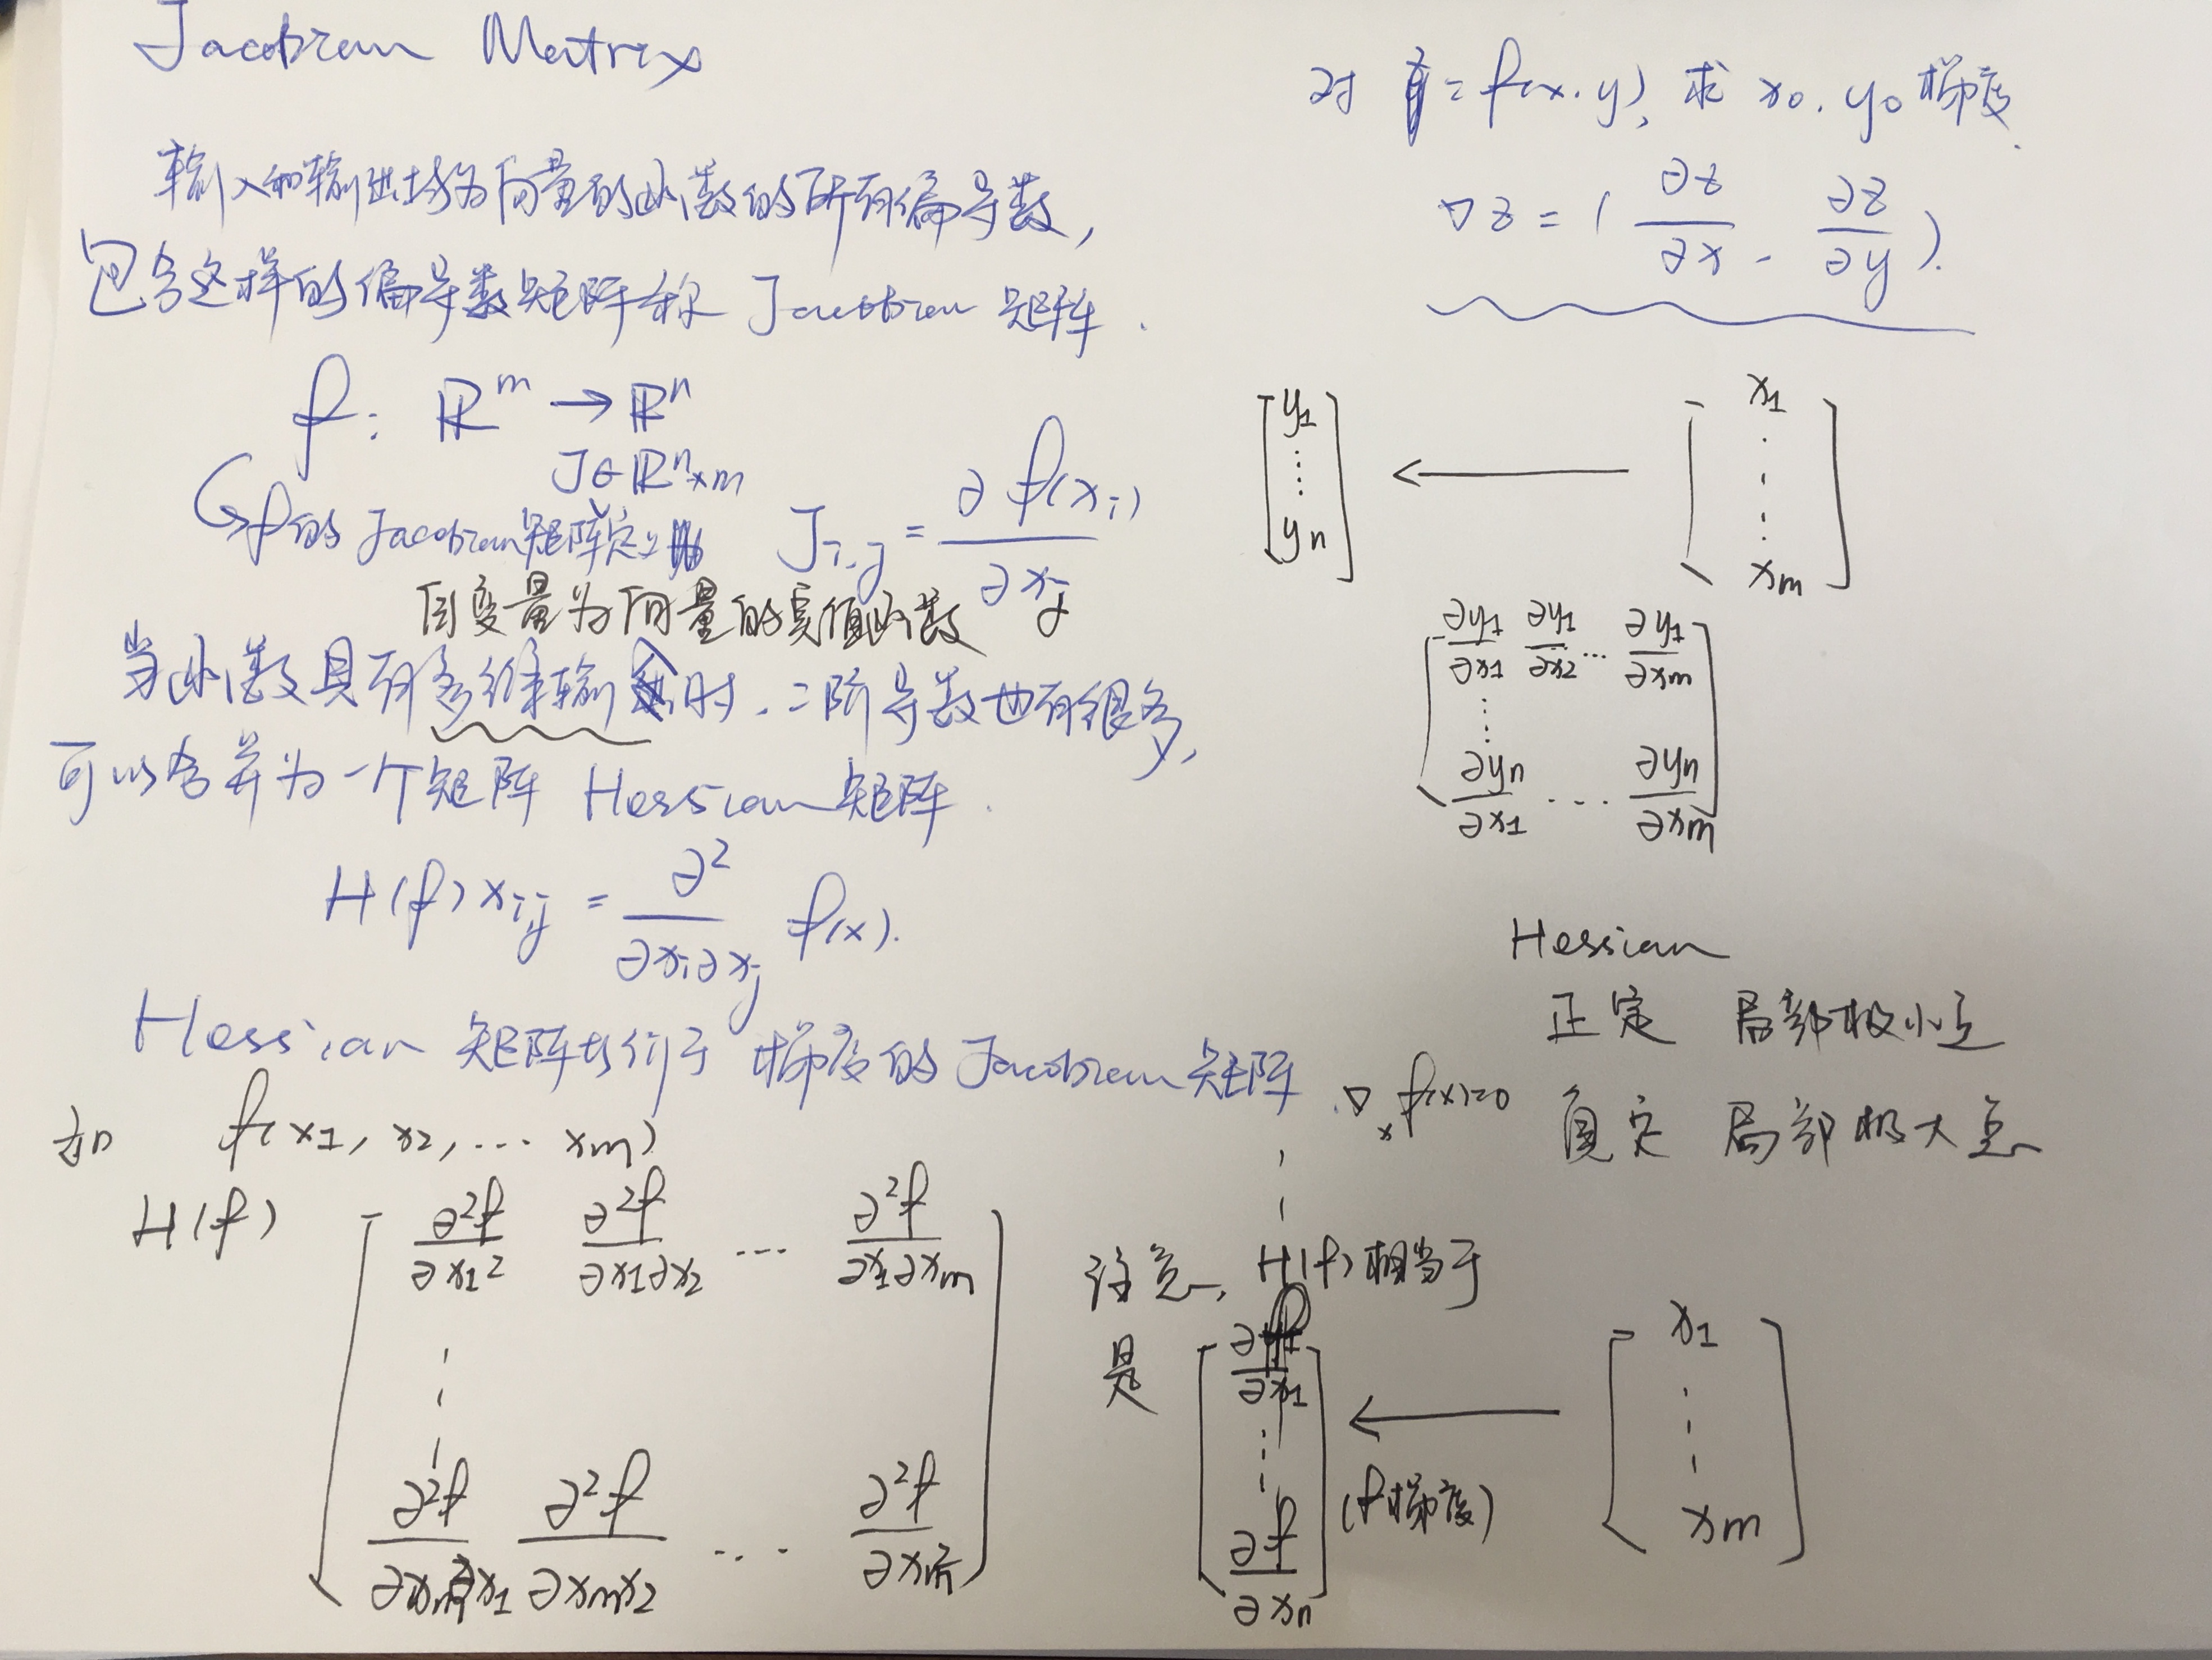 Jacobian Matrix
输入和输出均为向量的函数的所有偏导数,
包含这样的偏导数矩阵称 Jacobian 矩阵.
f: ℝ^m → ℝ^n
J∈ℝ^{n×m}
f的Jacobian矩阵定义为 J_{i,j} = ∂f(x_i)/∂x_j
自变量为向量的实值函数
当函数具有多维输入时,二阶导数也有很多,
可以合并为一个矩阵 Hessian矩阵.
H(f)x_{ij} = ∂²/∂x_i∂x_j f(x).
Hessian 矩阵均衡于 梯度的Jacobian矩阵.
如 f(x1, x2, ... xm)
H(f) [ ∂²f/∂x1² ∂²f/∂x1∂x2 ... ∂²f/∂x1∂xm
⋮
∂²f/∂xm∂x1 ∂²f/∂xmx2 ... ∂²f/∂xm² ]
对 = f(x.y), 求 x0. y0 梯度.
∇z = ( ∂z/∂x , ∂z/∂y ).
[ y1 ⋮ yn ] ← [ x1 ⋮ xm ]
[ ∂y1/∂x1 ∂y1/∂x2 ... ∂y1/∂xm
⋮
∂yn/∂x1 ... ∂yn/∂xm ]
Hessian
正定 局部极小点
∇_x f(x)=0 负定 局部极大点
注意, H(f)相当于
是 [ ∂f/∂x1 ⋮ ∂f/∂xn ] ← [ x1 ⋮ xm ]
(f梯度)